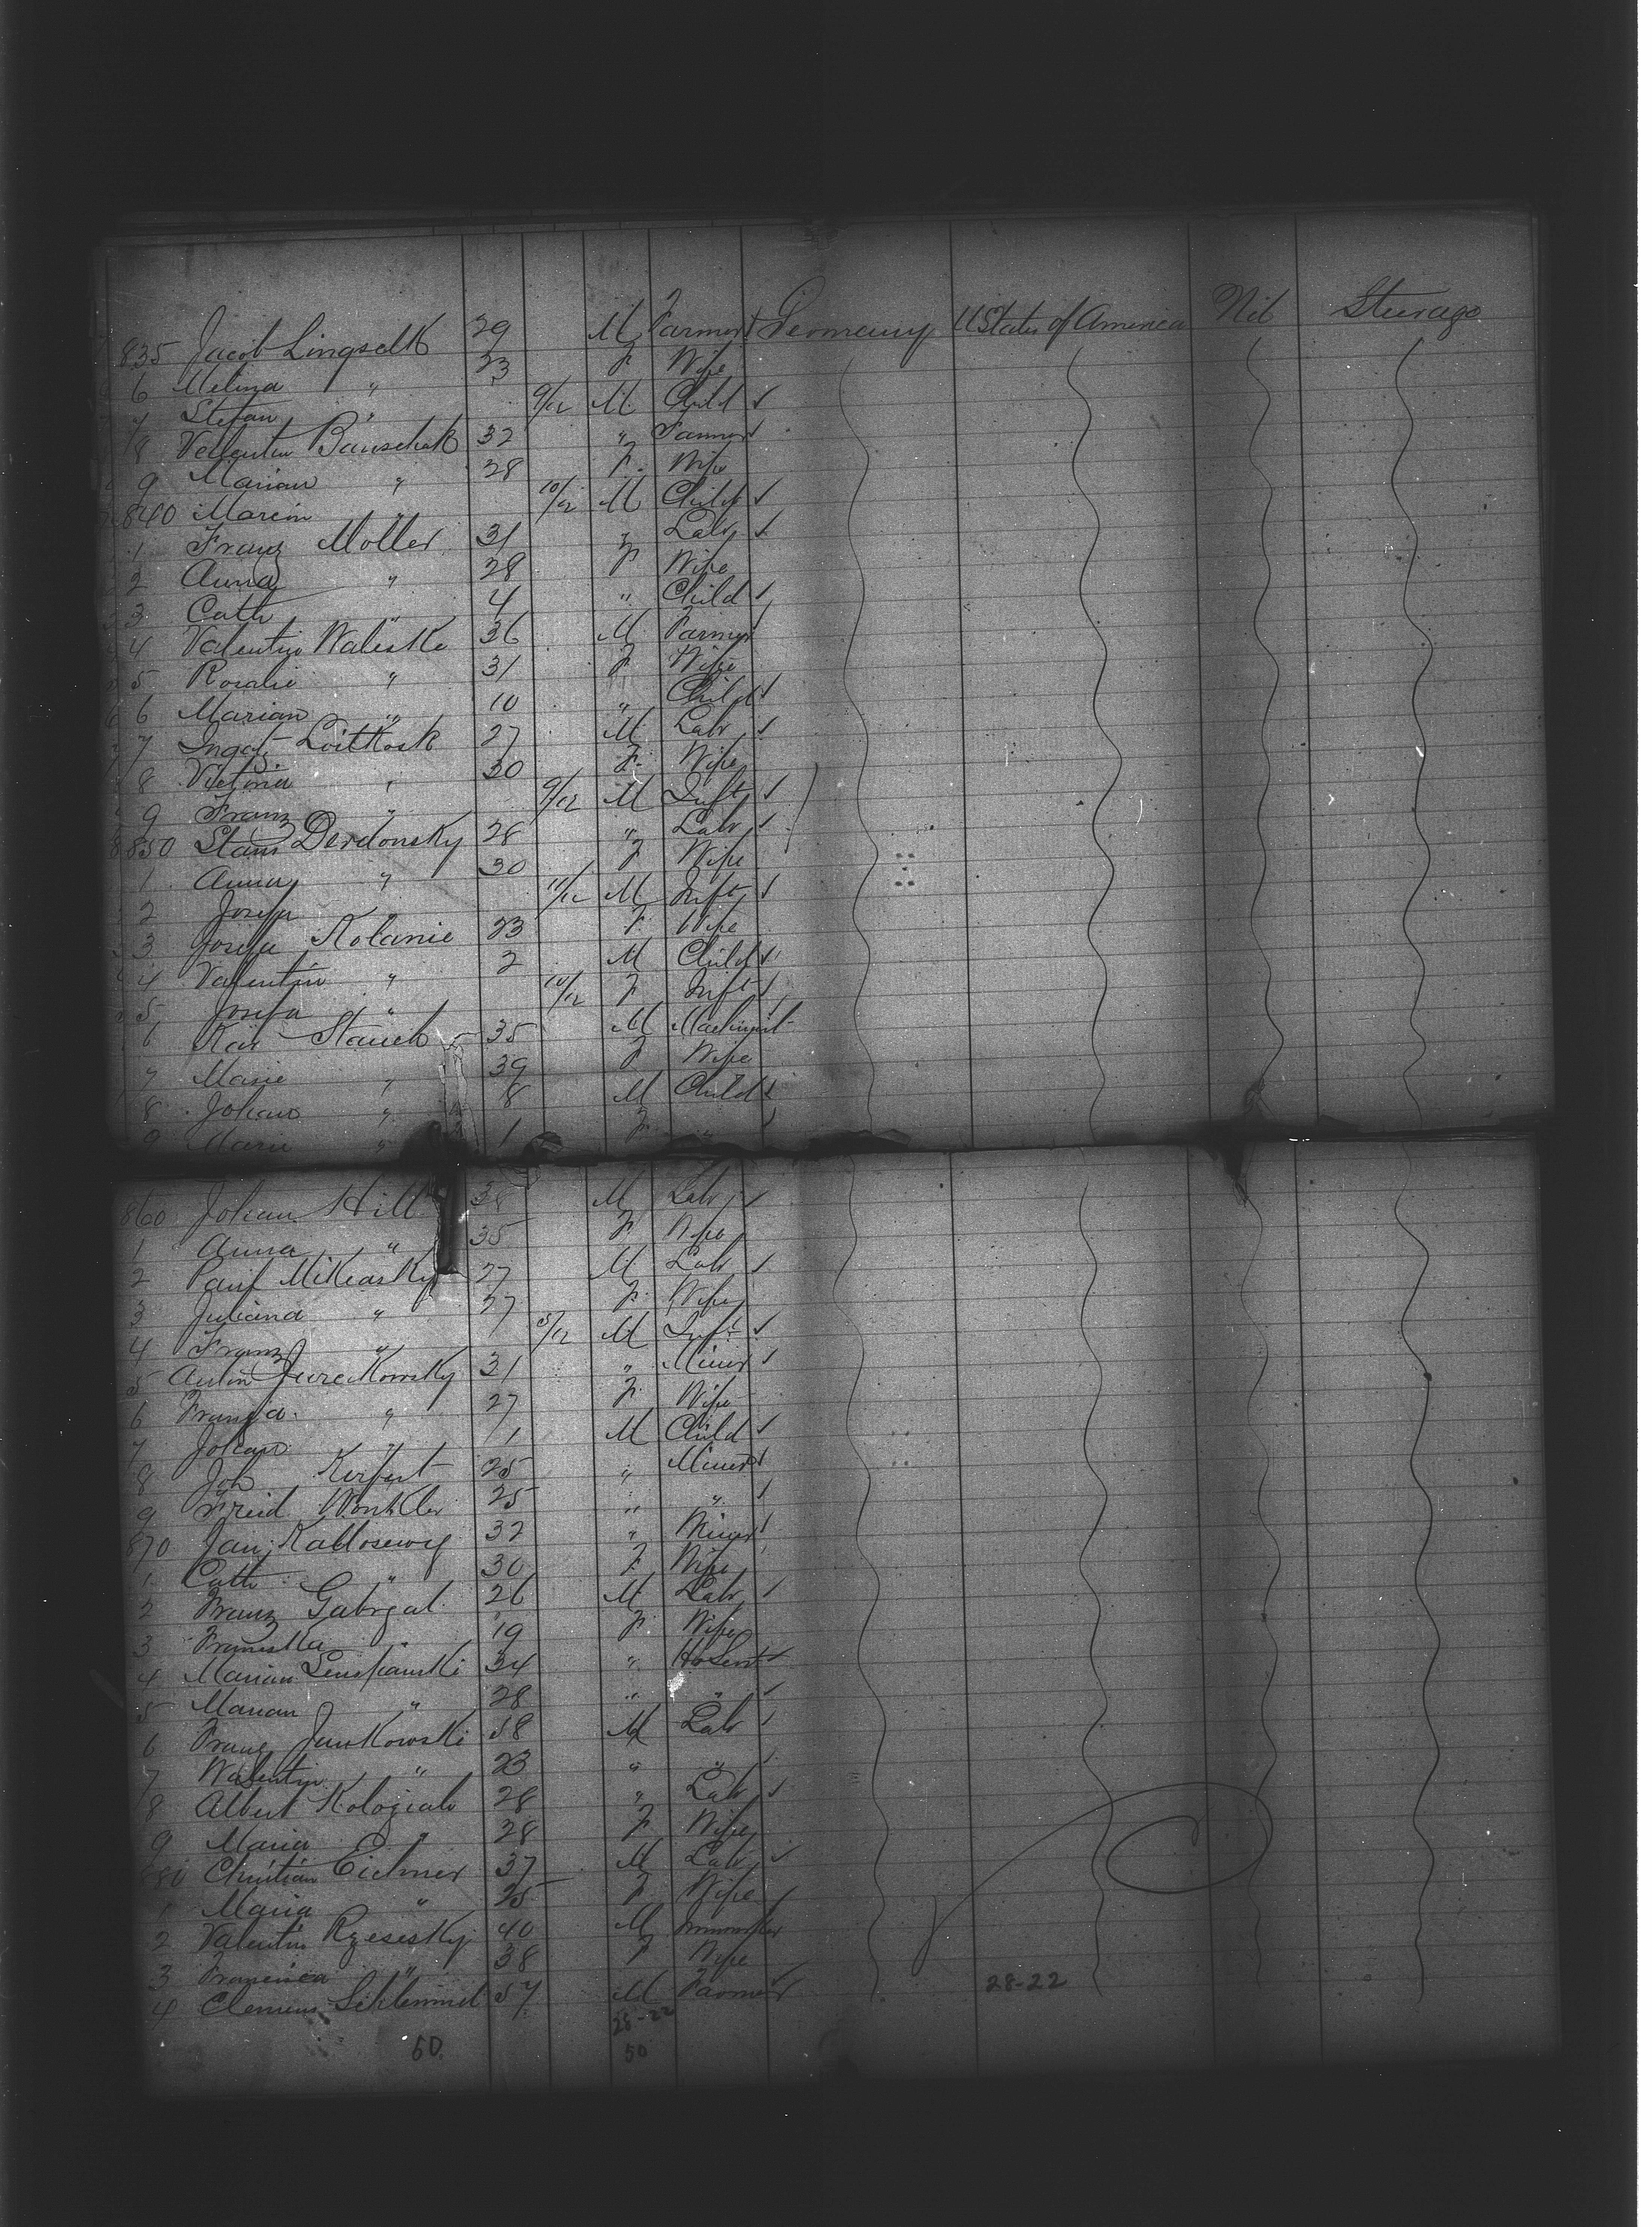 835 Jacob Lingselk 29 M Farmer Germany U States of America Nil Steerage
6 Melina " 23 F Wife
7 Stefan " 9/12 M Child
8 Vellentin Bauschak 32 " Farmer
9 Marian " 28 F Wife
840 Marcin " 10/12 M Child
1 Franz Moller 31 " Labr
2 Anna " 28 F Wife
3 Cath " 4 " Child
4 Valentin Waleske 36 M Farmer
5 Rosalie " 31 F Wife
6 Marian " 10 " Child
7 Ingatz Loitkosk 27 M Labr
8 Victoria " 30 F Wife
9 Franz " 9/12 M Inft
850 Stans Derdonsky 28 " Labr
1 Anna " 30 F Wife
2 Josefa " 11/12 M Inft
3 Josefa Kolanie 23 F Wife
4 Valentin " 2 M Child
5 Josefa " 10/12 F Inft
6 Karl Stauch 35 M Machinist
7 Marie " 39 F Wife
8 Johan " 8 M Child
9 Marie " 1 F "
860 Johan Hill 38 M Labr
1 Anna " 35 F Wife
2 Paul Mikiasky 27 M Labr
3 Juliana " 27 F Wife
4 Franz " 5/12 M Inft
5 Anton Jurcikowsky 31 " Miner
6 Franza " 27 F Wife
7 Johan " 1 M Child
8 Joh Kerfert 25 " Miner
9 Fried Winkler 25 " "
870 Jan Kallosewig 32 " Miner
1 Cath " 30 F Wife
2 Franz Gabrgal 26 M Labr
3 Franiska " 19 F Wife
4 Marian Leuspanski 34 " Ho Servt
5 Marian " 28 " "
6 Franz Jankowski 58 M Labr
7 Walentin " 23 " "
8 Albert Kologiab 28 " Labr
9 Maria " 28 F Wife
880 Christian Eichner 37 M Labr
1 Maria " 25 F Wife
2 Valentin Rzesesky 40 M
3 Francisca " 38 F Wife
4 Clemens Schlemmel 57 M Farmer 28-22
28-22
50 50